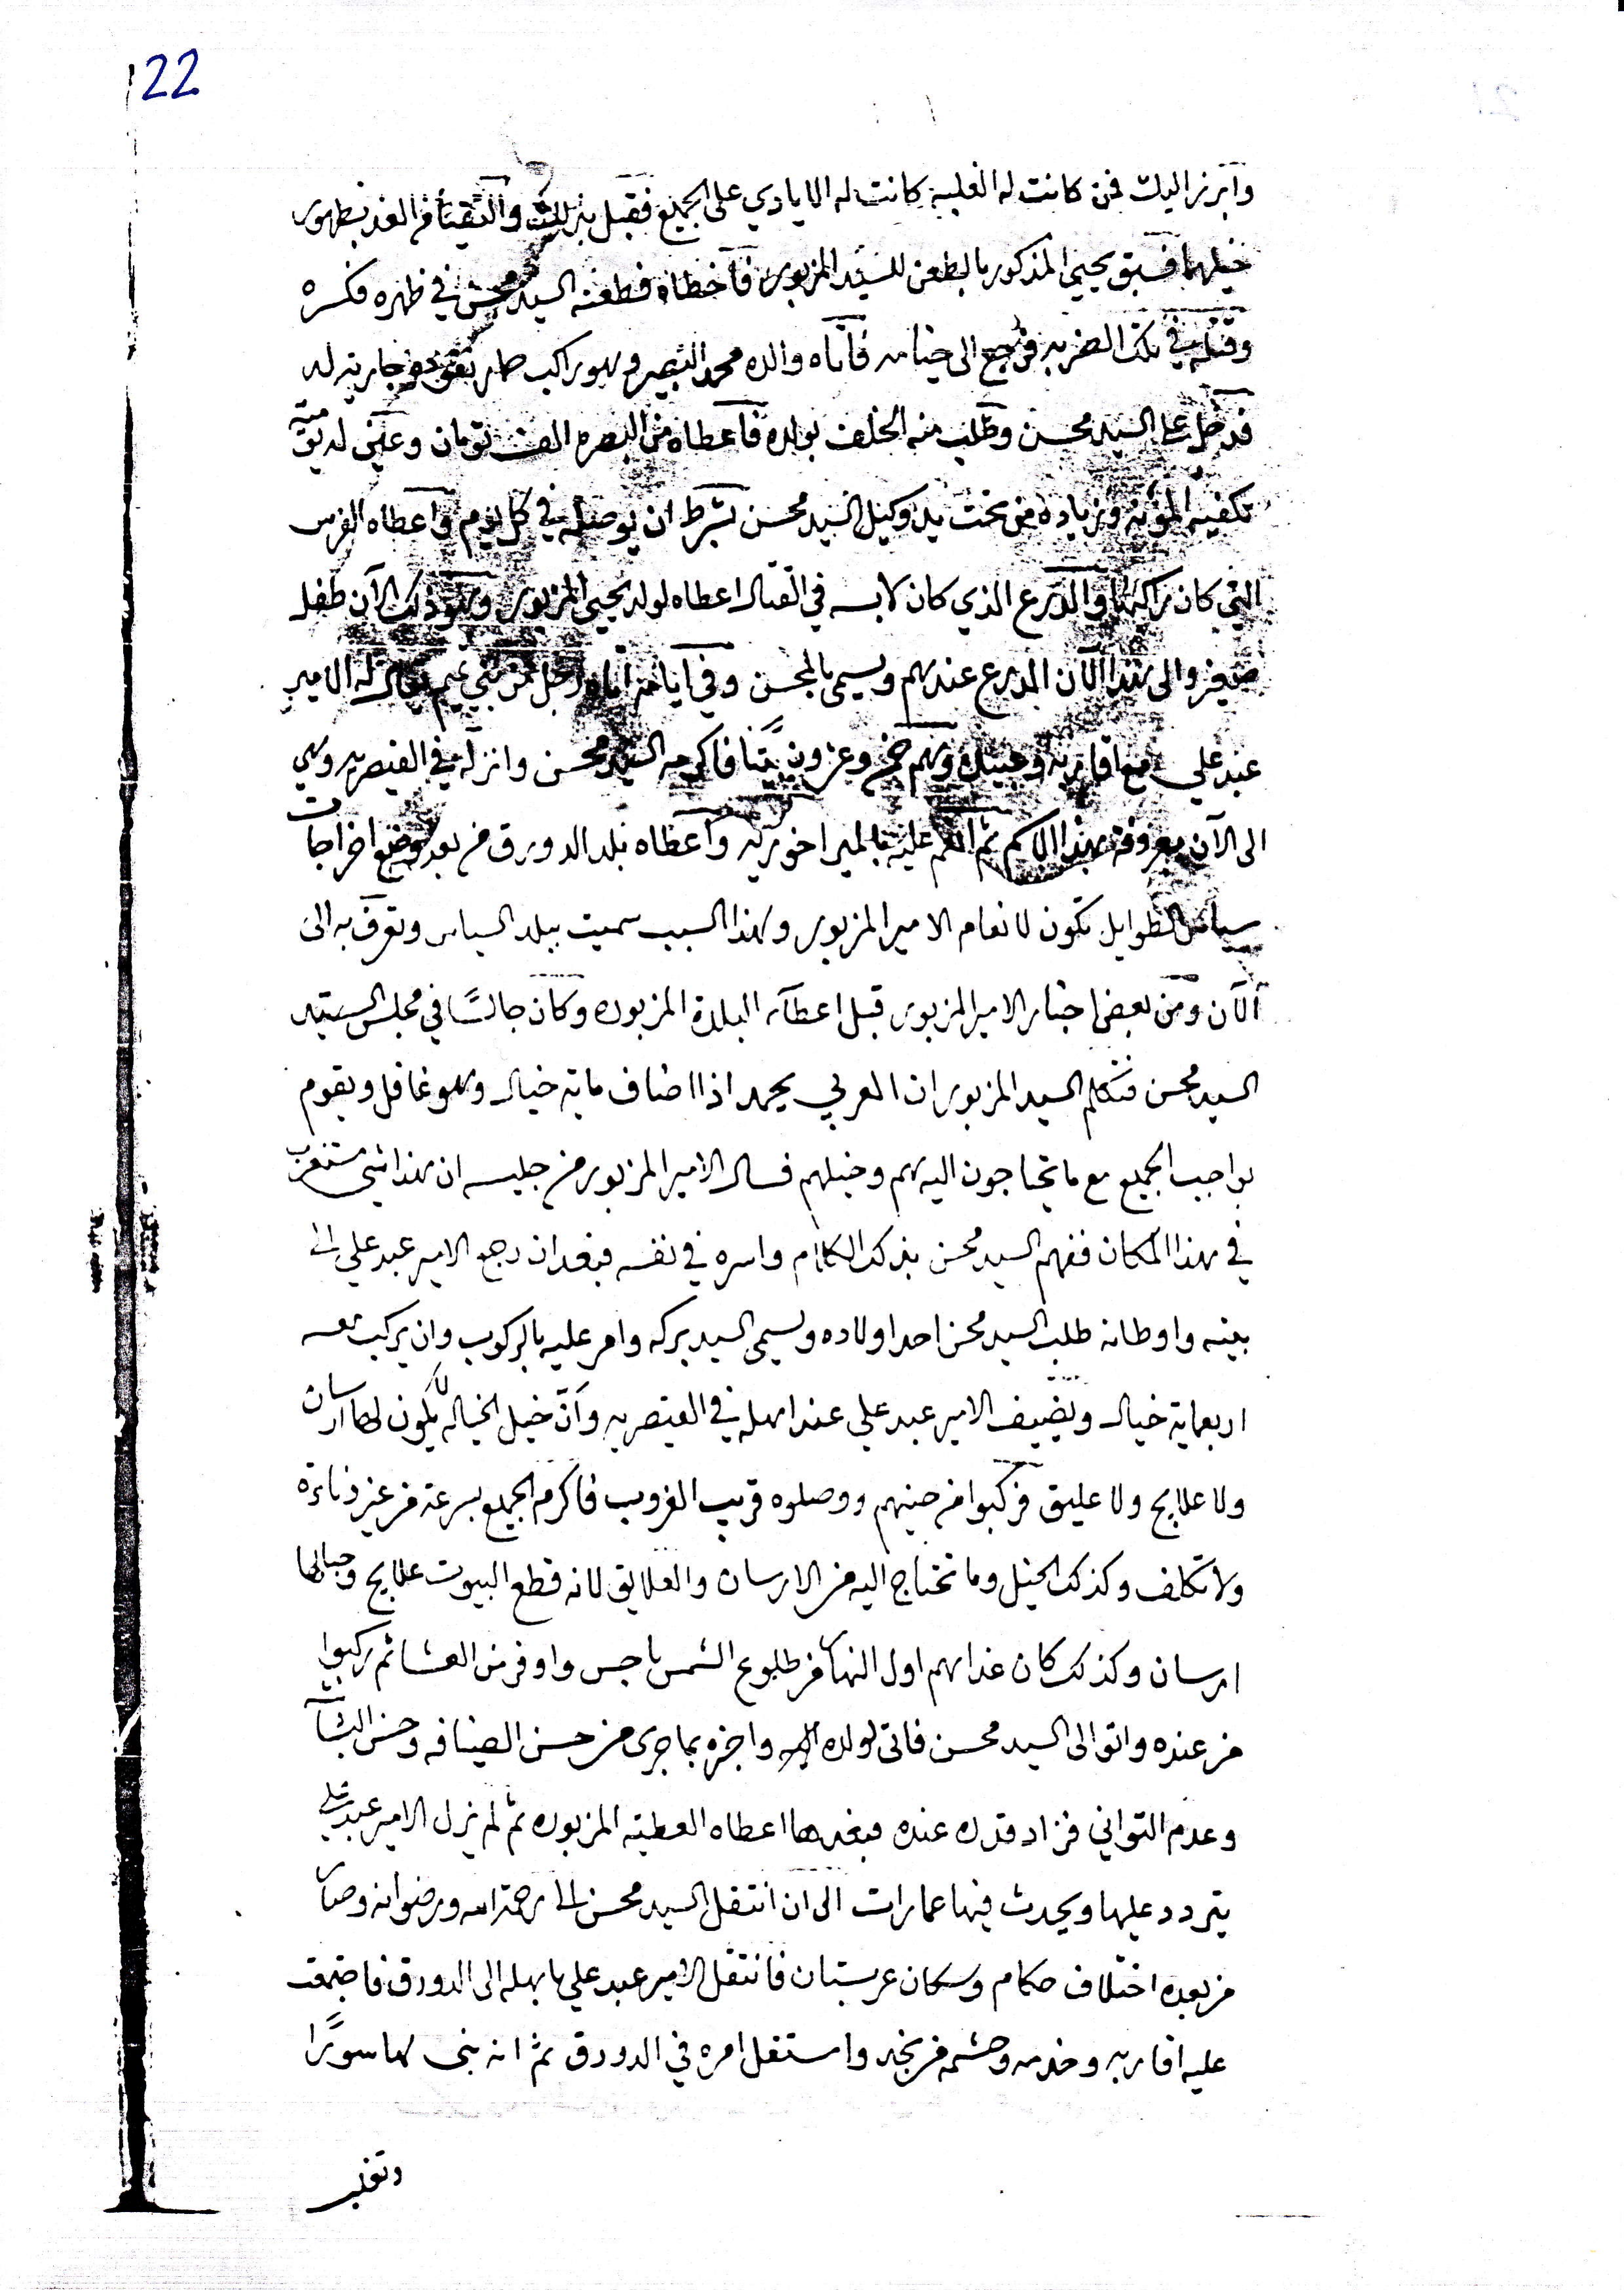 22
وابرز اليك فمن كانت له الغلبه كانت له الايادي على الجميع فقبل بذلك والتقيا من الغد بظهور
خيلهما فسبق يحيى المذكور بالطعن للسيد المزبور فآخطاه فطعنه السيد محسن في ظهره فكسره
وقتله في تلك الضربه فرجع الى خيامه فآتاه والده محمد البصير وهو راكب حمار تقوده جاريه له
فدخل على السيد محسن وطلب منه الخلف بولده فآعطاه من البصره الف تومان وعين له
تكفيه المؤنه وزياده من تحت يد وكيل السيد محسن بشرط ان يوصله في كل يوم واعطاه الفرس
التي كان راكبها والدرع الذي كان لابسه في القتال اعطاه لولد يحيى المزبور وهو ذلك الآن طفل
صغير والى هذا الآن المدرع عندهم ويسمى بالمحسن وفي ايامه آتاه رجل من بني تميم يقال له الامير
عبد علي مع اقاربه وعبيده وهم خمس وعزون بيتا فاكرمه السيد محسن وانزله في القيصريه وهي
الى الآن معروفه بهذا الاسم ثم انعم عليه بالميراخوريه وآعطاه بلد الدورق من بعد وضع اخراجات
سياس الطوايل تكون لانعام الامير المزبور وبهذا السبب سميت ببلد السياس وتعرف به الى
الآن ومن بعض اخبار الامير المزبور قبل اعطآئه البلدة المزبوره وكان جالسًا في مجلس السيد
السيد محسن فتكلم السيد المزبور ان العربي يحمد اذا اضاف مايه خيال وهو غافل ويقوم
بواجب الجميع مع ما تحتاجون اليه هم وخيلهم فسال الامير المزبور من جليسه ان هذا شي مستغرب
في هذا المكان ففهم السيد محسن بذلك الكلام واسره في نفسه فبعد ان رجع الامير عبد علي الى
بيته واوطانه طلب السيد محسن احد اولاده ويسمى السيد بركه وامر عليه بالركوب وان يركب معه
اربعماية خيال ويضيف الامير عبد علي عند اهله في القيصريه وآن خيل الخياله لا يكون لها ارسان
ولا علايج ولا عليق فركبوا من حينهم ووصلوه قريب الغروب فاكرم الجميع بسرعة من غير
ولا تكلف وكذلك الخيل وما تحتاج اليه من الارسان والعلايق لانه قطع البيوت علايج وحبالها
ارسان وكذلك كان غداهم اول النهار من طلوع الشمس باحسن واوفر من العشا ثم ركبوا
من عنده واتوا الى السيد محسن فاتى لولده اليه واخبره بما جرى من حسن الضيافه وحسن
وعدم التواني فزاد قدره عنده فبعدها اعطاه العطيه المزبوره ثم لم يزل الامير عبد علي
يتردد عليها ويحدث فيها عمارات الى ان انتقل السيد محسن الى رحمة الله ورضوانه وصار
من بعده اختلاف حكام وسكان عربستان فانتقل الامير عبد علي باهله الى الدورق فاجتمعت
عليه اقاربه وخدمه وحشمه من نجد واستقل امره في الدورق ثم انه بنى لها سورًا
وتغلب